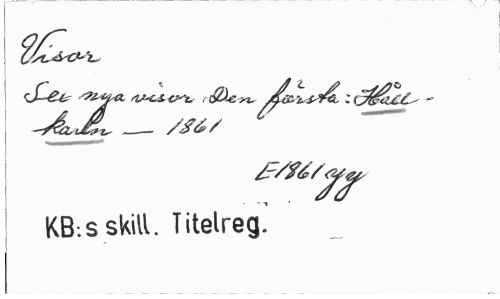 Visor
Sex nya visor. Den första: Håll-
karln — 1861
E1861 yy
KB:s skill. Titelreg.